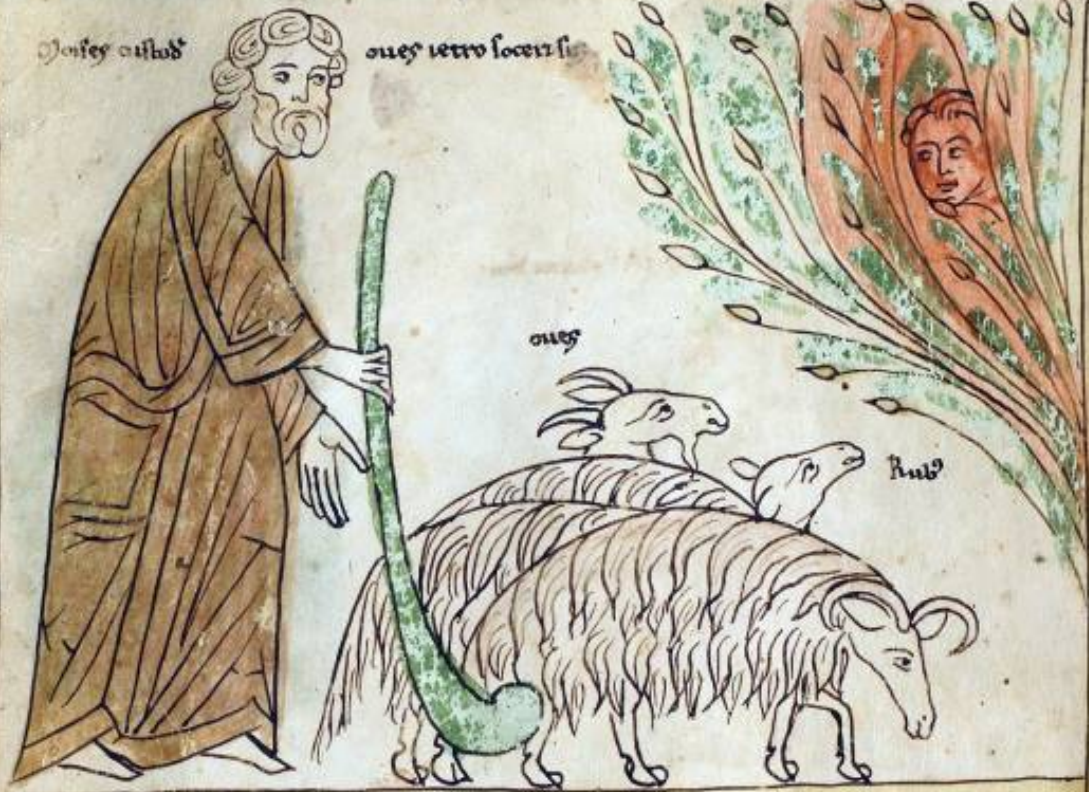 Moises custod' oues ietro soceri sui
oues
Rub'